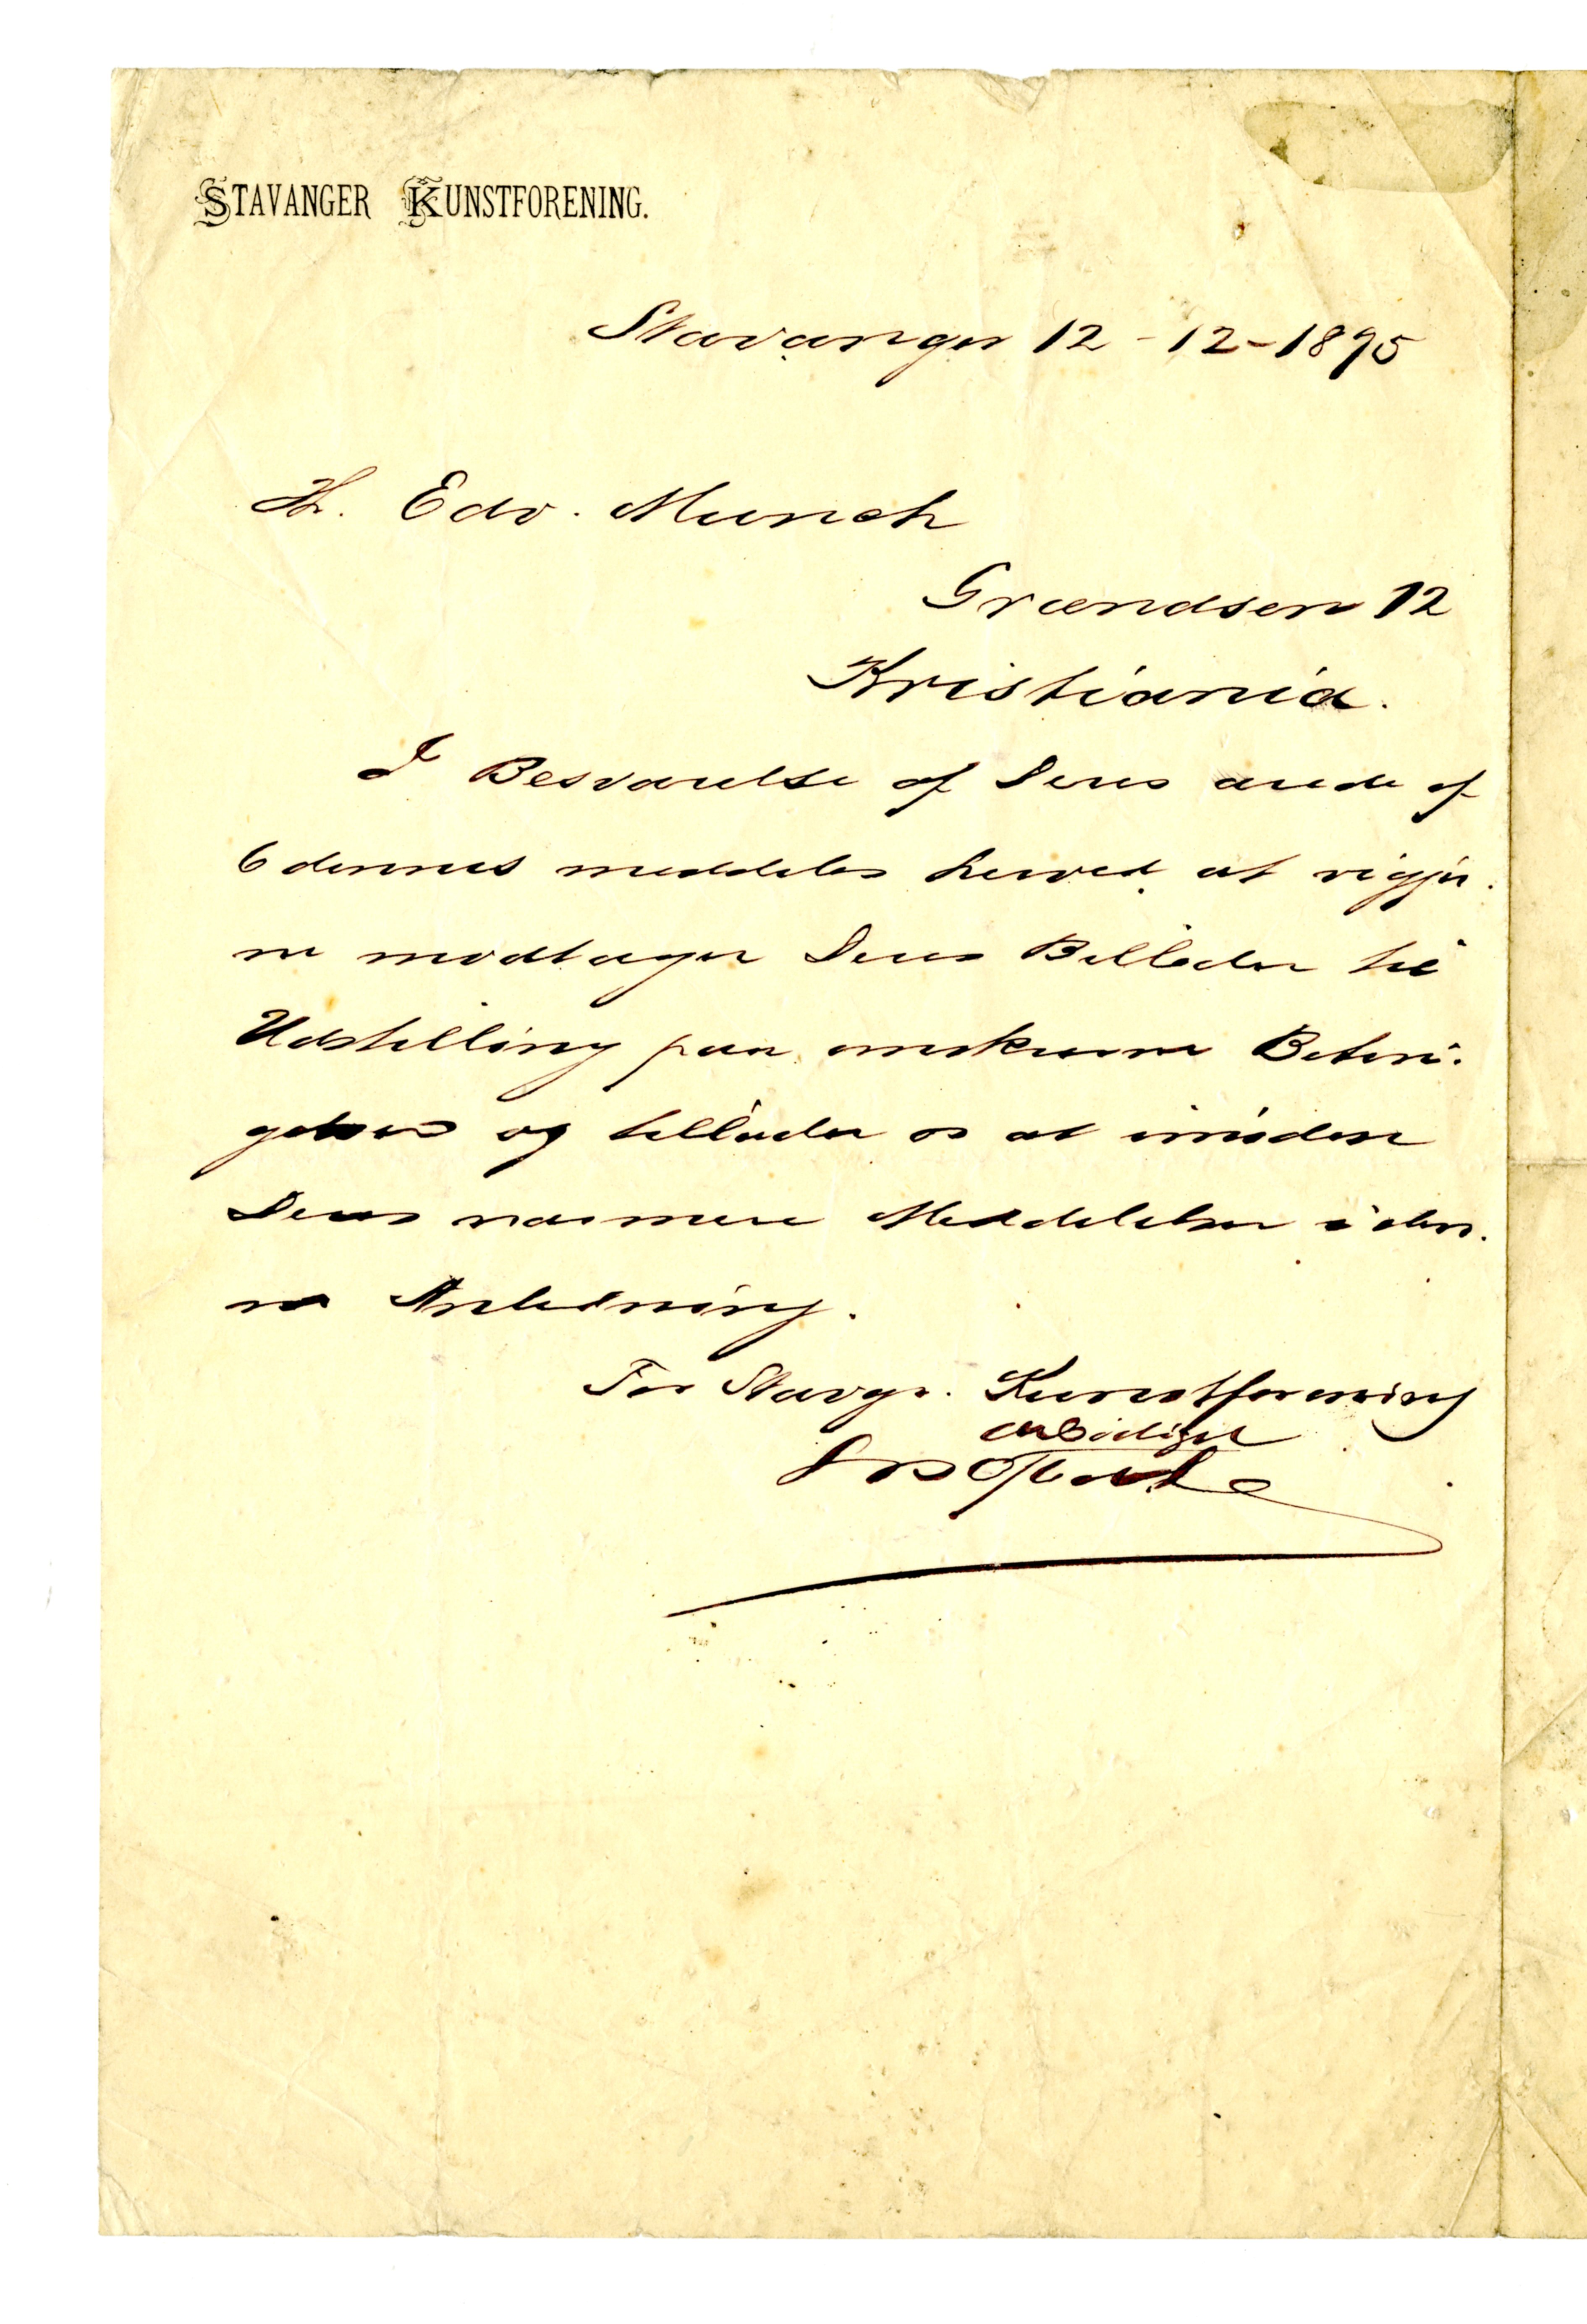 STAVANGER KUNSTFORENING.
Stavanger 12-12-1895
Hr. Edv. Munch
Grændsen 12
Kristiania.
I Besvarelse af Deres ærede af
6 dennes meddeles herved at vi gjer-
ne modtager Deres Billeder til
Udstilling paa omskrevne Betin-
gelser og tillader os at imødese
Deres nærmere Meddelelser i den-
ne Anledning.
For Stavgr. Kunstforening
ærbødigst